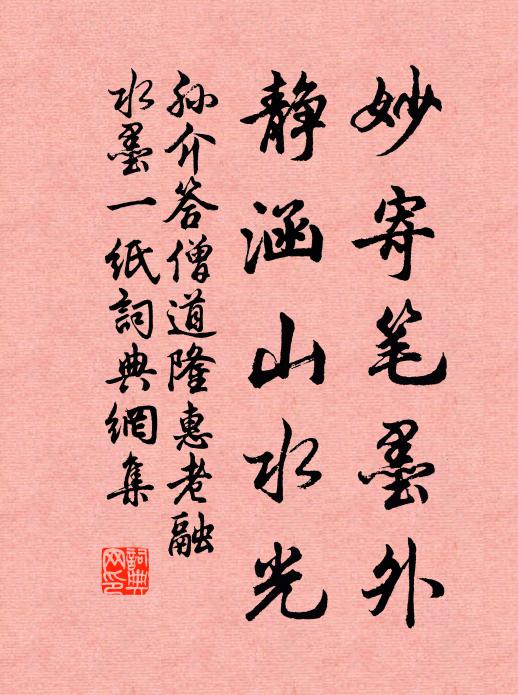 妙寄笔墨外
静涵山水光
孙介答僧道隆惠老融
水墨一纸詞典網集
詞典网印